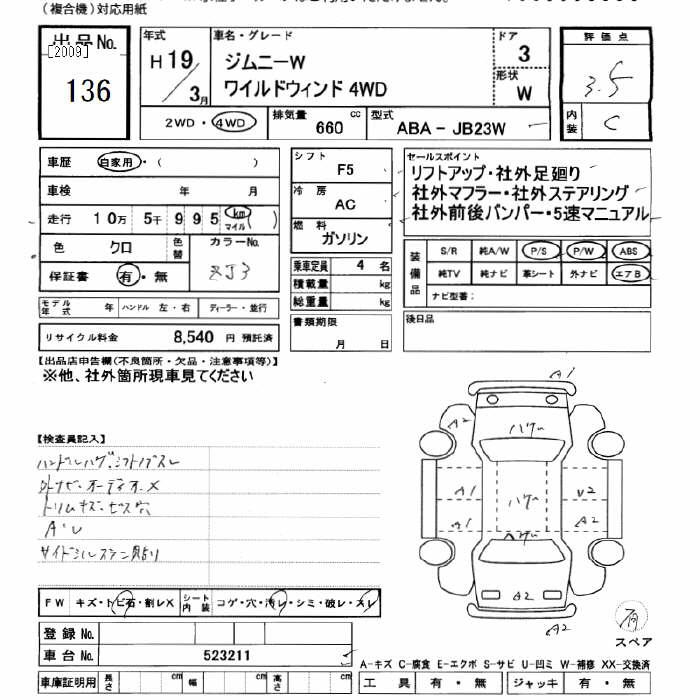 (複合機)対応用紙
出品No.
[2009]
136
年式
H19/3月
車名・グレード
ジムニーW
ワイルドウィンド 4WD
ドア
3
形状
W
評価点
3.5
内装
C
2WD・4WD
排気量
660 cc
型式
ABA - JB23W
車歴 自家用・( )
車検 年 月
走行 10万 5千 995 km マイル ( )
色 クロ 色替
カラーNo.
ZJ3
保証書 有・無
モデル年式 年 ハンドル 左・右 ディーラー・並行
リサイクル料金 8,540 円 預託済
シフト
F5
冷房
AC
燃料
ガソリン
乗車定員 4 名
積載量 kg
総重量 kg
書類期限
月 日
セールスポイント
リフトアップ・社外足廻り
社外マフラー・社外ステアリング
社外前後バンパー・5速マニュアル
装備品
S/R 純A/W P/S P/W ABS
純TV 純ナビ 革シート 外ナビ エアB
ナビ型番:
後日品
【出品店申告欄(不良箇所・欠品・注意事項等)】
※他、社外箇所現車見てください
【検査員記入】
ハンドルハゲ、シフトノブスレ
外ナビ・オーディオ-X
トリムキズ・ビス穴
サイドシルステン貼り
A1
A2
A2
ハゲ
A1
ハゲ
U2
A1
A2
ハゲ
A2
A2
有
スペア
FW キズ・トビ石・割レX
シート内装 コゲ・穴・汚レ・シミ・破レ・スレ
登録No.
車台No. 523211
車庫証明用 長さ cm 幅 cm 高さ cm
A-キズ C-腐食 E-エクボ S-サビ U-凹ミ W-補修 XX-交換済
工具 有・無 ジャッキ 有・無